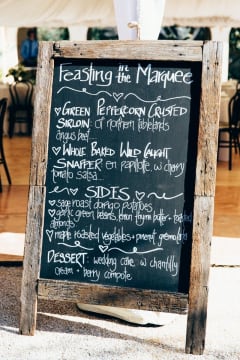 Feasting in the Marquee
GREEN PEPPERCORN CRUSTED
SIRLOIN of northern tablelands
angus beef
WHOLE BAKED WILD CAUGHT
SNAPPER en papillote, w cherry
tomato salsa
SIDES
sage roast potatoes
garlic green beans, thyme butter +
almonds
maple roasted vegetables +
DESSERT: wedding cake w chantilly
cream + berry compote